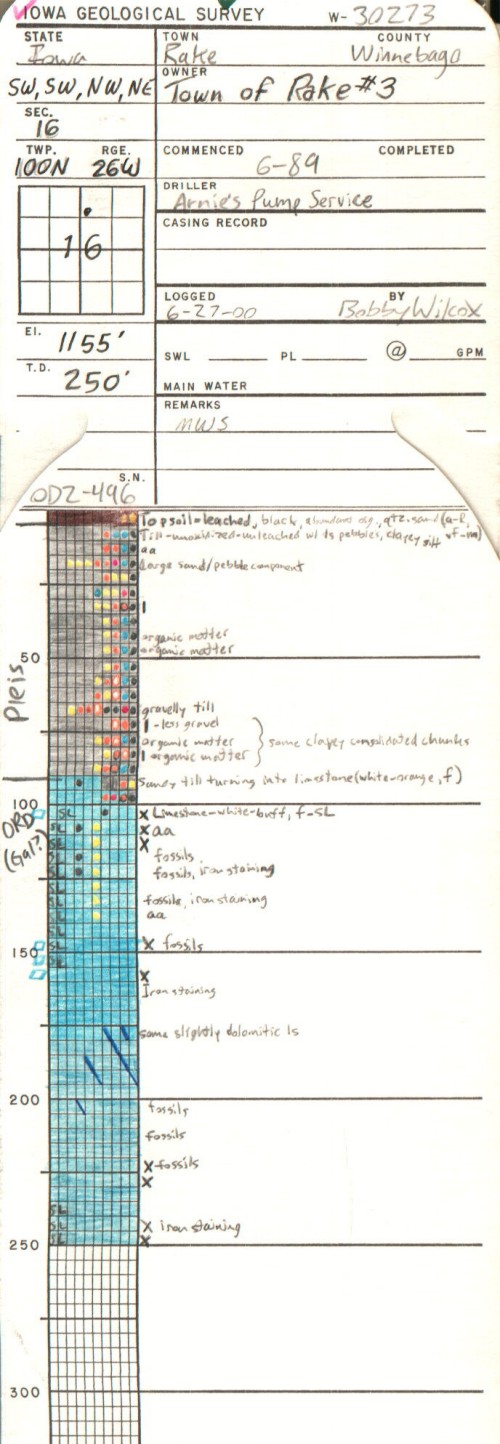 IOWA GEOLOGICAL SURVEY W-30273
STATE TOWN COUNTY
Iowa Rake Winnebago
OWNER
SW, SW, NW, NE Town of Rake #3
SEC.
16
TWP. RGE. COMMENCED COMPLETED
100N 26W 6-89
DRILLER
Arnie's Pump Service
CASING RECORD
16
LOGGED BY
6-27-00 Bobby Wilcox
El. 1155'
SWL PL @ GPM
T.D. 250'
MAIN WATER
REMARKS
MWS
S.N.
ODZ-496
Topsoil-leached, black, abundant org., qtz. sand (a-r,
Till-unoxidized-unleached w/ ls pebbles, clayey silt vf-m)
aa
Large sand/pebble component
organic matter
organic matter
50
Pleis
gravelly till
-less gravel
organic matter some clayey consolidated chunks
organic matter
Sandy till turning into limestone (white-orange, f)
100
ORD (Gal?)
SL X Limestone-white-buff, f-SL
SL X aa
SL X
SL fossils
SL fossils, iron staining
SL
SL fossils, iron staining
SL aa
SL
150
SL X fossils
SL
X
Iron staining
some slightly dolomitic ls
200
fossils
fossils
X fossils
X
SL
SL X iron staining
SL X
250
300